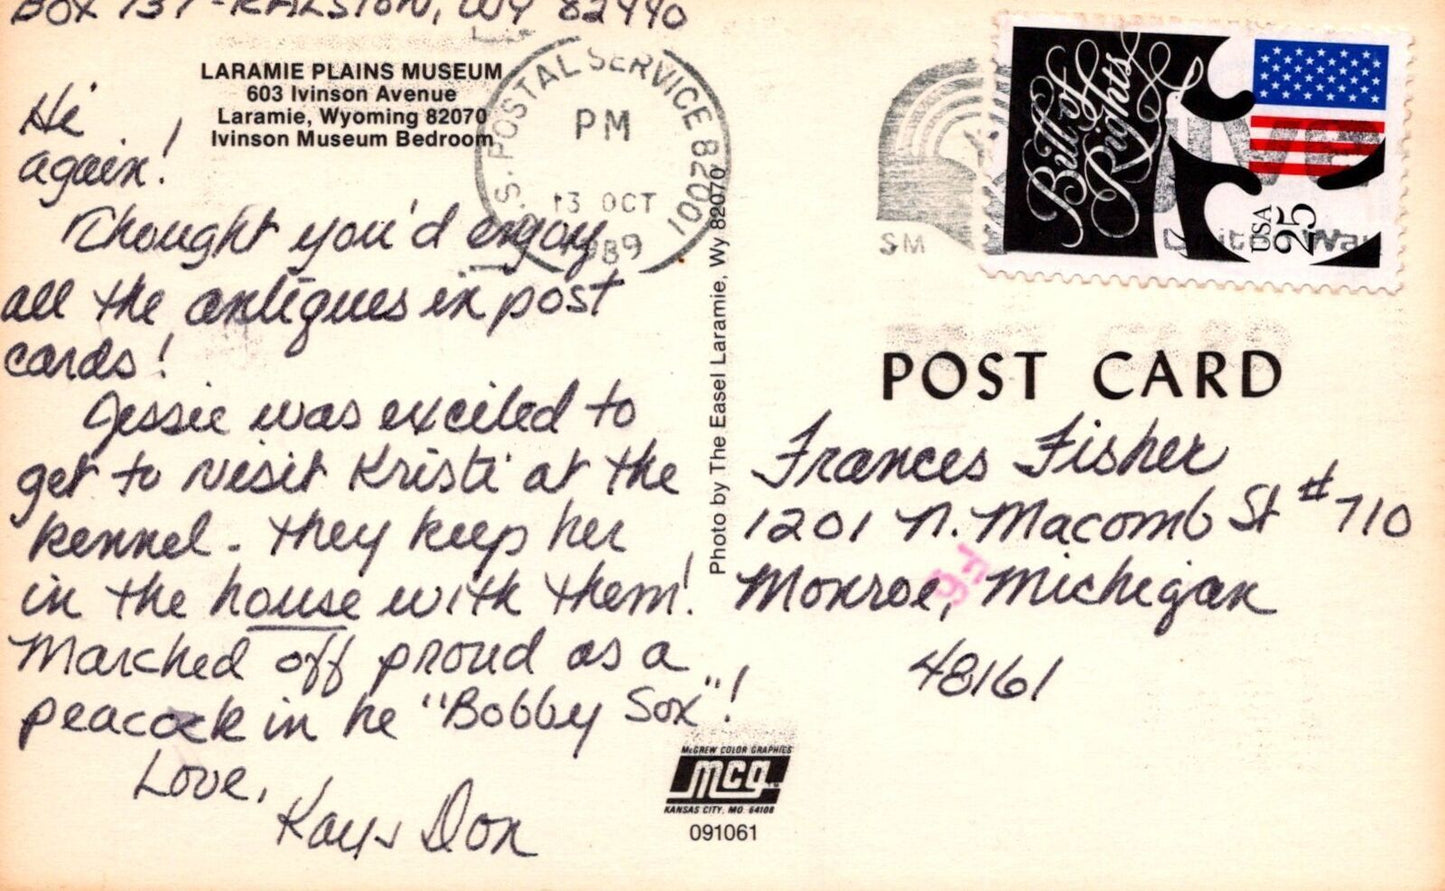 BOX 737 - RALSTON, WY 82440
LARAMIE PLAINS MUSEUM
603 Ivinson Avenue
Laramie, Wyoming 82070
Ivinson Museum Bedroom
Hi
again!
Thought you'd enjoy
all the antiques in post
cards!
Jessie was excited to
get to visit Kristi at the
kennel. They keep her
in the house with them!
Marched off proud as a
peacock in he "Bobby Sox"!
Love,
Kay & Don
U.S. POSTAL SERVICE 82001
PM
13 OCT
1989
Photo by The Easel Laramie, Wy 82070
SM
Bill of
Rights
USA
25
POST CARD
Frances Fisher
1201 N. Macomb St #710
Monroe, Michigan
48161
McGREW COLOR GRAPHICS
mcg
KANSAS CITY, MO. 64108
091061